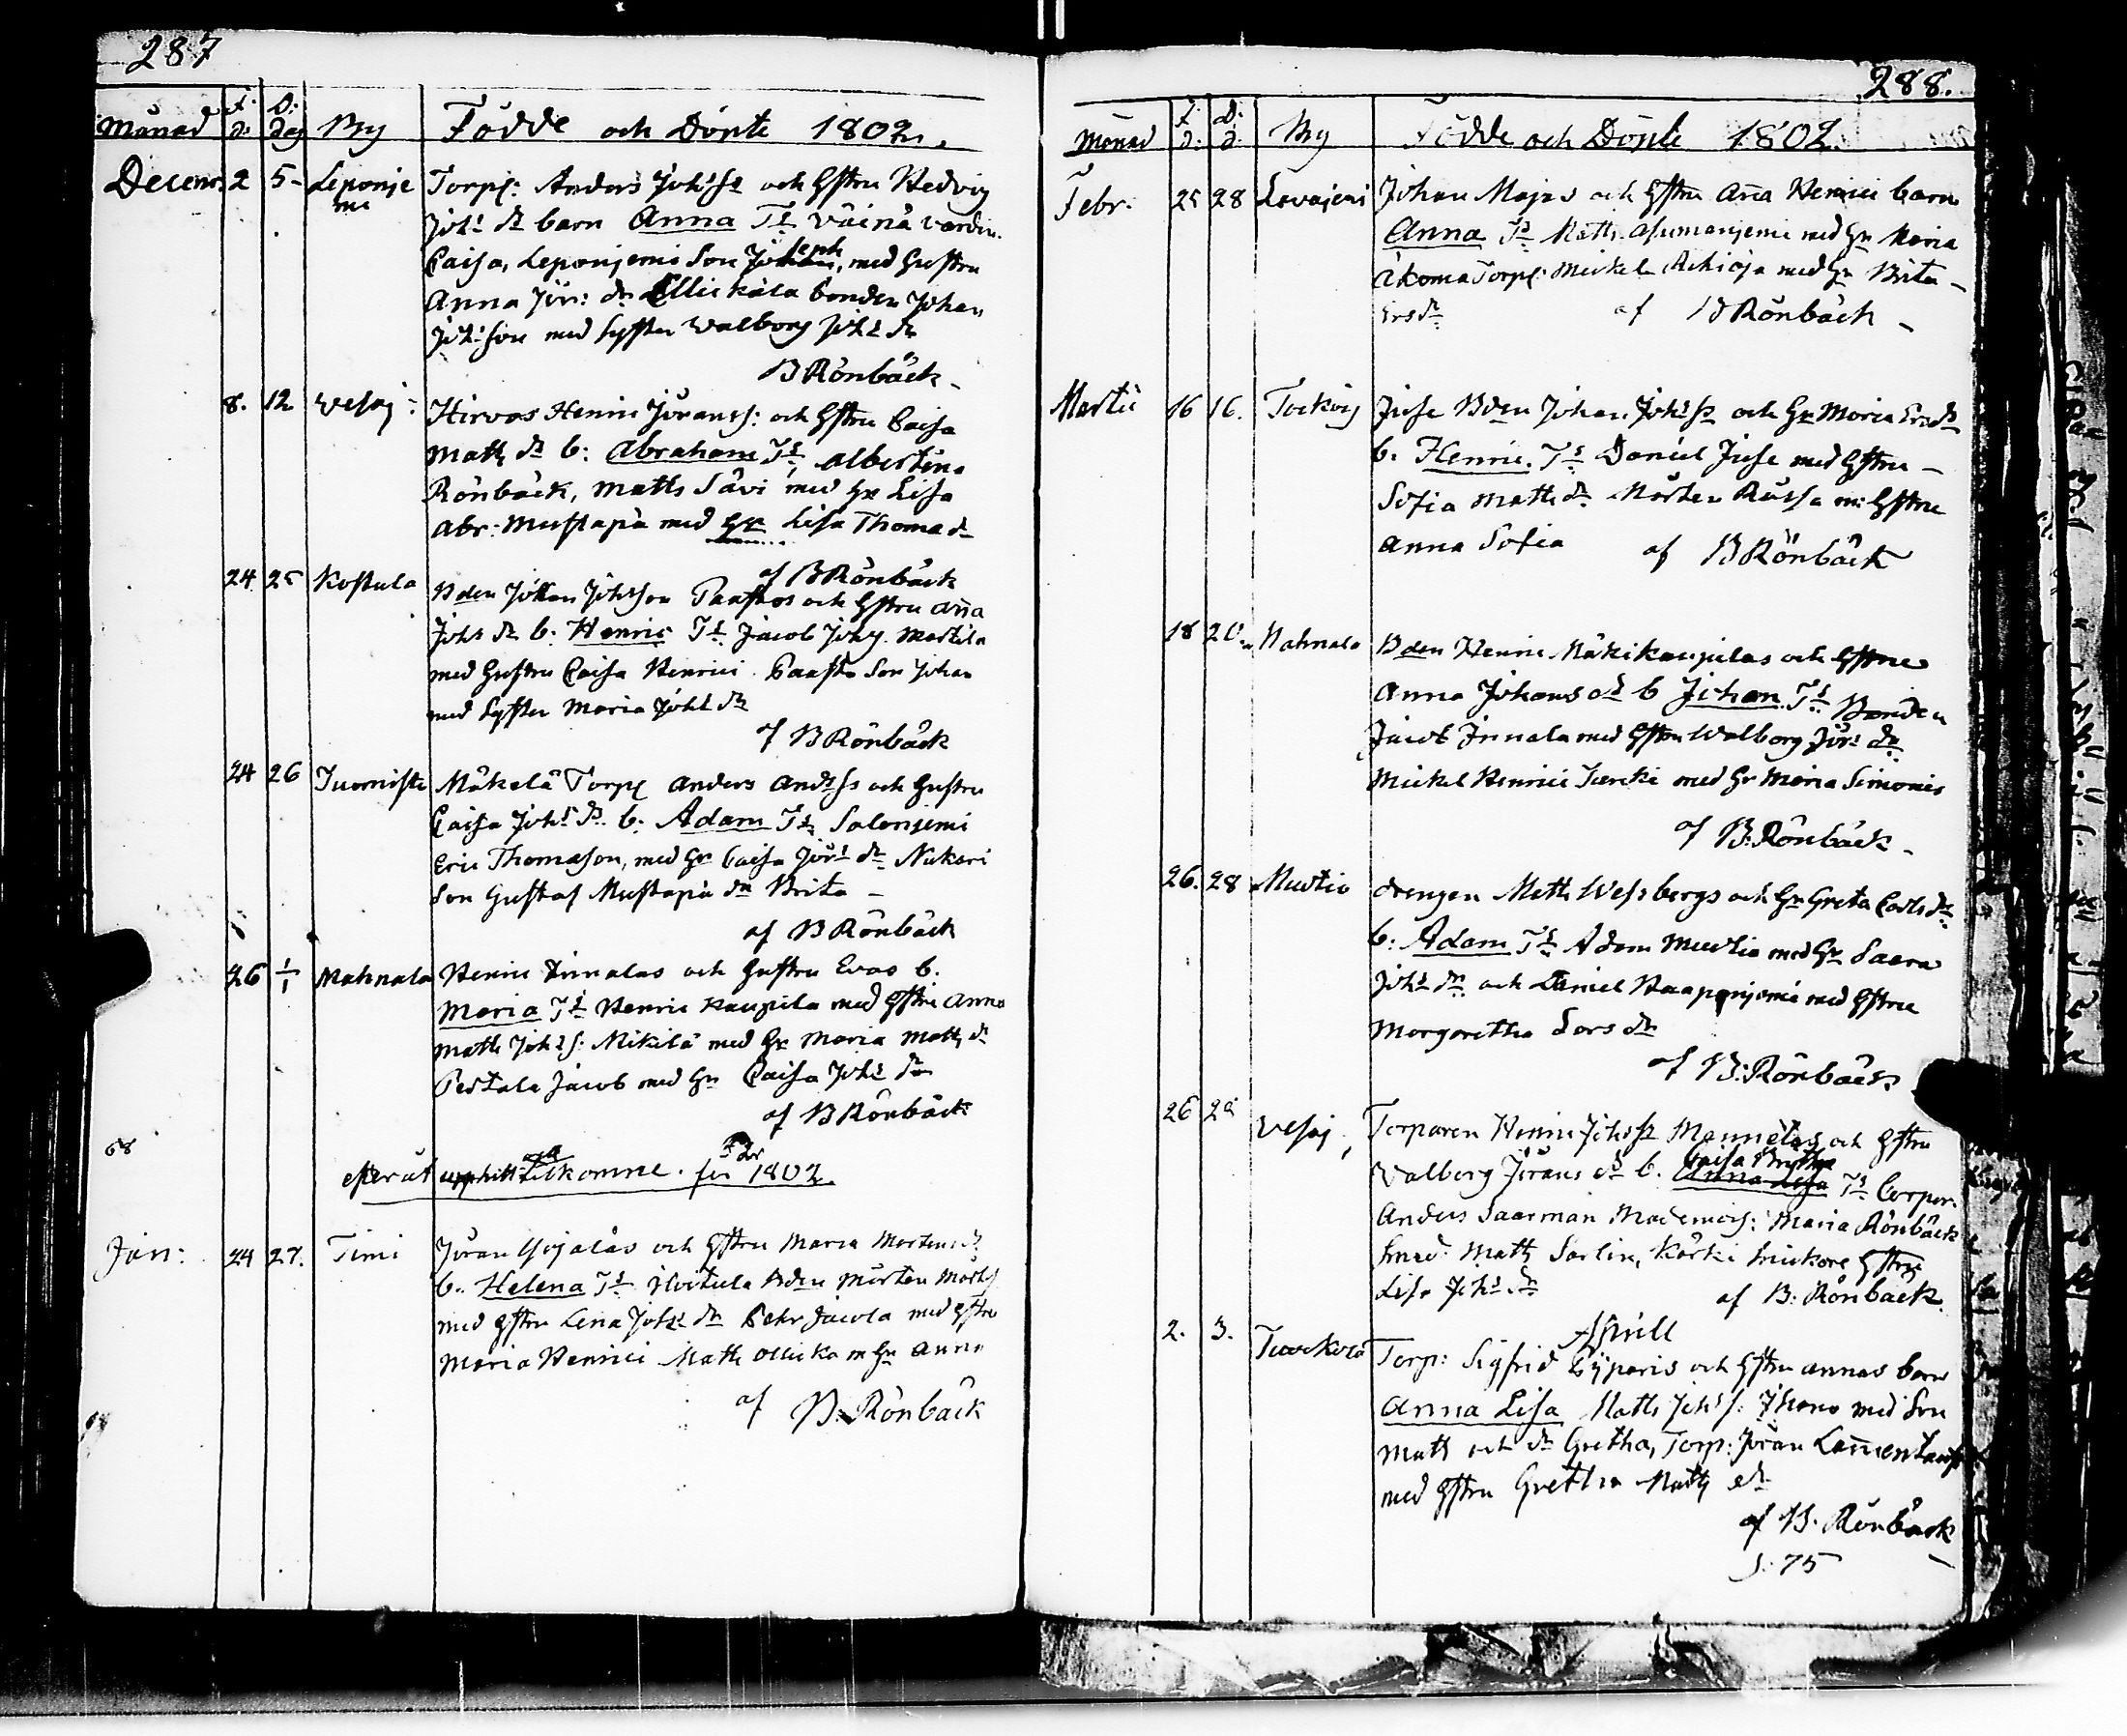 287
Månad f. d: D: dag By Födde och Döpte 1802.
Decemr 2 5 Leponjemi Torp: Anders Johsss och Hstru Hedvig
Johs dr barn Anna Ts Väinä Värdin
Caisa, Leponjemi Son Joseph, med Hustru
Anna Jör: dr Ollickala bonden Johan
Johsson med Syster Walborg Johs dr
B Rönbäck
8. 12 Vesaj: Hirvas Henric Jöranss: och Hstru Caisa
Matts dr b: Abraham Ts, Albertina
Rönbäck, Matts Sävi med Hu Lisa
Abr: Mustapä med Hu Lisa Thoma dr
af B Rönbäck
24 25 Kostula Bden Johan Johsson Paastos och Hstru Aña
Johs dr b. Henric Ts Jacob Johs. Martila
med Hustru Caisa Henrici Paasto Son Johan
med Syster Maria Johs dr
af B Rönbäck
24 26 Juorniste Mäkelä Torp Anders Andss och Hustru
Caisa Johs dr b. Adam Ts Salonjemi
Eric Thomason, med Hu Caisa Jörs dr Nukari
Son Gustaf Mustapä dr Brita
af B Rönbäck
26 1/1 Mahnala Henric Innalas och Hustru Evas b.
Maria Ts Henric Kaupila med Hstru Anna
Matts Johs: Mikilä med Hu Maria Matts dr
Pertala Jacob med Hu Caisa Johs dr
af B Rönbäck
68
efteråt tilkomne för 1802.
Jan: 24 27. Timi Jöran Yrjäläs och Hstru Maria Mortens dr
b. Helena Ts Hoitula Bden Mårten Mårts
med Hstru Lena Johs dr Pehr Jacola med Hstru
Maria Henrici Matts Ollicka m Hu Anna
af B: Rönbäck
288.
Månad f. d: D: d. By Födde och Döpte 1802.
Febr. 25 28 Lavajemi Johan Majas och Hstru Aña Henrici barn
Anna Ts Matts Asumanjemi med Hu Maria
Torp: Mickel med Hu Brita
Ers dr af B Rönbäck
Martii 16 16. Tockoij Juse Bden Johan Johsss och Hu Maria Ers dr
b. Henric. Ts Daniel Juse med Hstru
Sofia Matts dr Mårten Russa m: Hstru
Anna Sofia af B Rönbäck
18 20. Mahnala Bden Henric Mäkikaupilas och Hstru
Anna Johans dr b Johan. Ts Bonden
Jacob Innala med Hstru Walborg Jörs dr
Mickel Henrici Turcki med Hu Maria Simonis
af B: Rönbäck
26. 28 Mustio drengen Matts Wessbergs och Hu Greta Carls dr
b: Adam Ts Adam Mustio med Hu Saara
Johs dr och Daniel Haaponjemi med Hstru
Margaretha Lars dr
af B: Rönbäck
26 29 Vesaj, Torparen Henric Johsss Mannelas och Hstru
Valborg Jörans dr b. Caisa Brytha Anna Lisa Ts Corpor.
Anders Saarman Mademois: Maria Rönbäck
Smed: Matts Sarlin, Kärki Hstru
Lisa Johs dr af B: Rönbäck
Aprill
2. 3. Tuorkola Torp: Sigfrid Zyparis och Hstru Annas barn
Anna Lisa Matts Johs: Ihono med Son
Matts och dr Gretha, Torp: Jöran
med Hstru Gretha Matts dr
af B. Rönbäck
S: 75